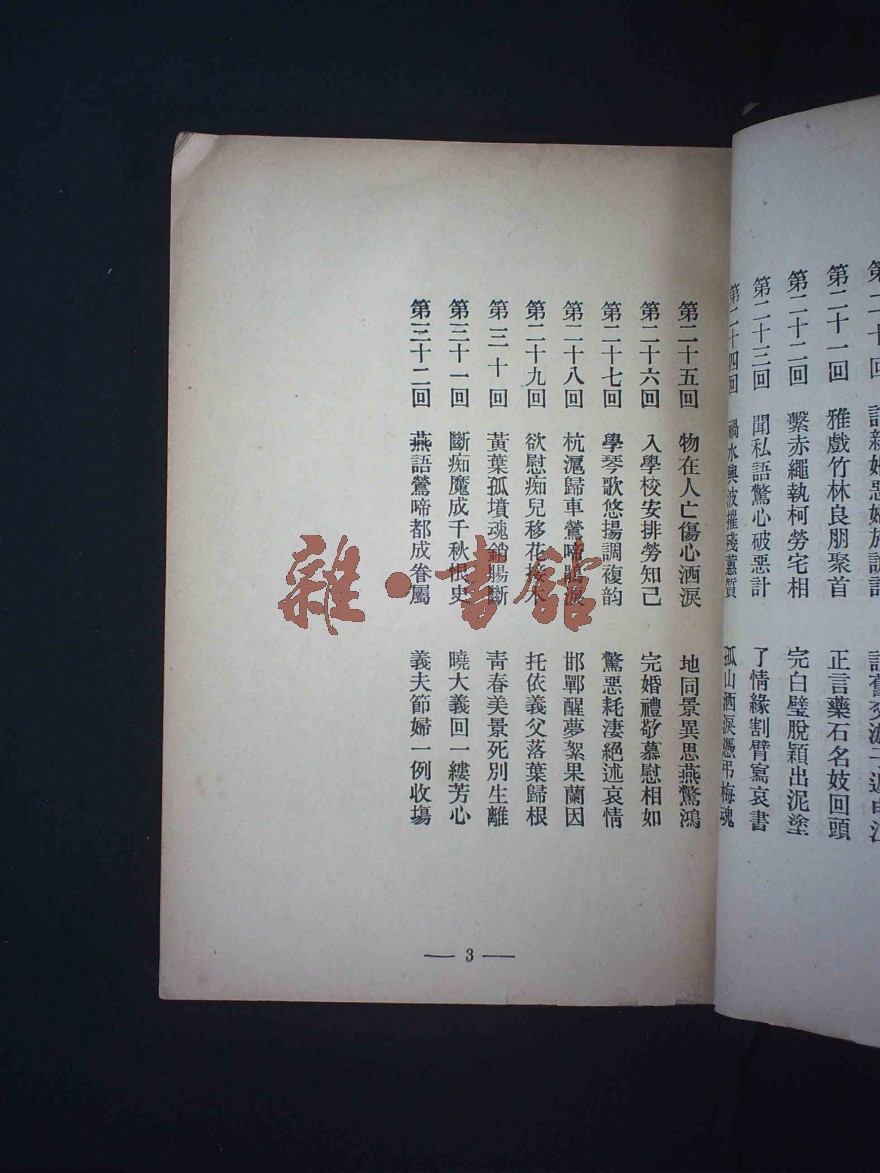 第二十回
第二十一回 雅戲竹林良朋聚首 正言藥石名妓回頭
第二十二回 繫赤繩執柯勞宅相 完白璧脫穎出泥塗
第二十三回 聞私語驚心破惡計 了情緣割臂寫哀書
第二十四回 禍水興波摧殘蕙質 孤山洒淚憑弔梅魂
第二十五回 物在人亡傷心洒淚 地同景異思燕驚鴻
第二十六回 入學校安排勞知己 完婚禮敬慕慰相如
第二十七回 學琴歌悠揚調複韵 驚惡耗淒絕述哀情
第二十八回 杭滬歸車鶯啼鵑淚 邯鄲醒夢絮果蘭因
第二十九回 欲慰痴兒移花接木 托依義父落葉歸根
第三十回 黃葉孤墳魂銷腸斷 青春美景死別生離
第三十一回 斷痴魔成千秋恨史 曉大義回一縷芳心
第三十二回 燕語鶯啼都成眷屬 義夫節婦一例收塲
— 3 —
雜·書館